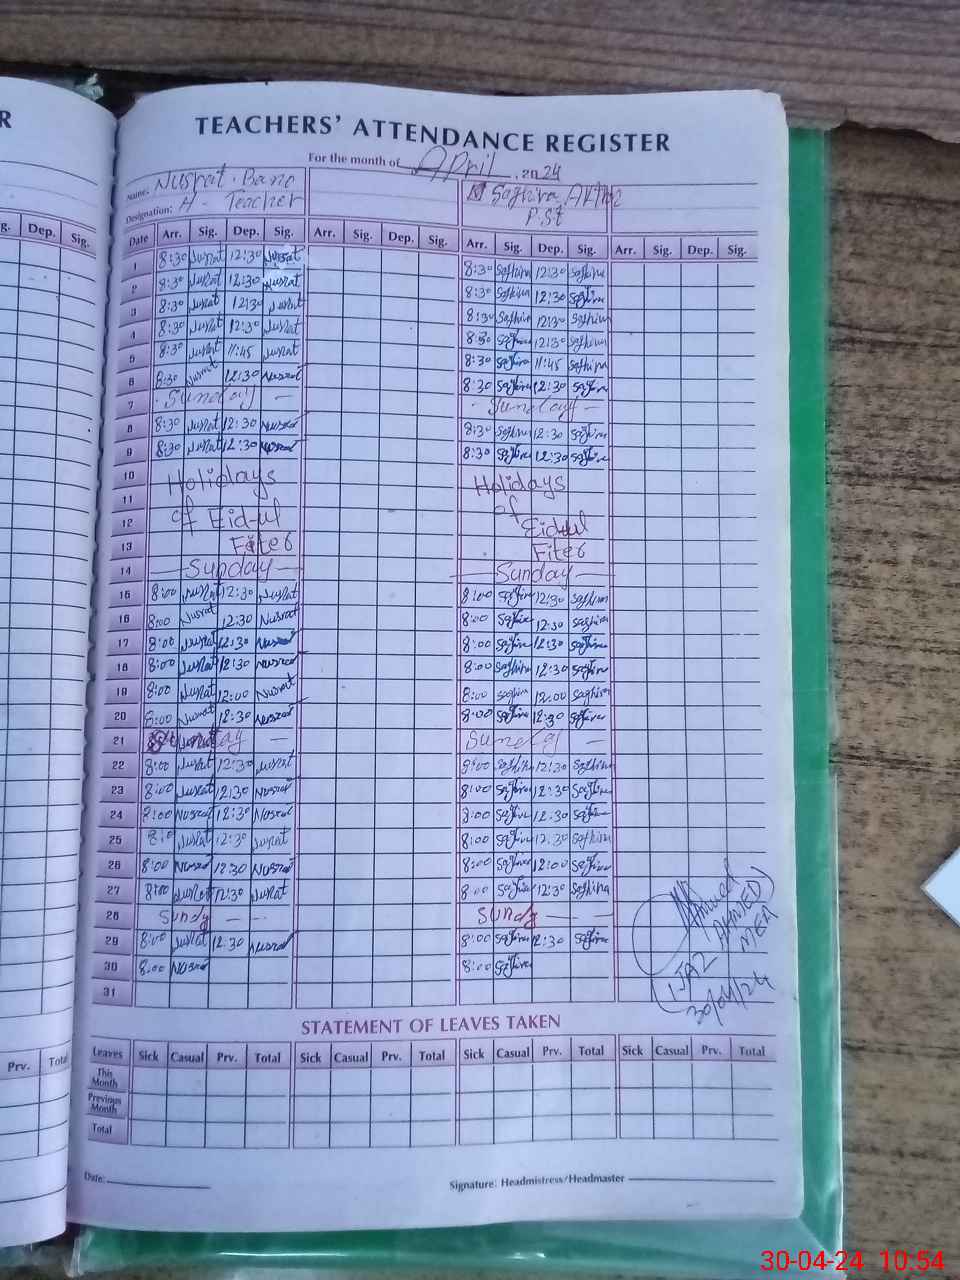 R
TEACHERS' ATTENDANCE REGISTER
For the month of April, 2024
Name: Nusrat Bano
Designation: H - Teacher
Saghira
P.S.t
g. Dep. Sig.
Date Arr. Sig. Dep. Sig. Arr. Sig. Dep. Sig. Arr. Sig. Dep. Sig. Arr. Sig. Dep. Sig.
1 8:30 Nusrat 12:30 Nusrat 8:30 Saghira 12:30 Saghira
2 8:30 Nusrat 12:30 Nusrat 8:30 Saghira 12:30 Saghira
3 8:30 Nusrat 12:30 Nusrat 8:30 Saghira 12:30 Saghira
4 8:30 Nusrat 12:30 Nusrat 8:30 Saghira 12:30 Saghira
5 8:30 Nusrat 11:45 Nusrat 8:30 Saghira 11:45 Saghira
6 8:30 Nusrat 12:30 Nusrat 8:30 Saghira 12:30 Saghira
7 Sunday - Sunday -
8 8:30 Nusrat 12:30 Nusrat 8:30 Saghira 12:30 Saghira
9 8:30 Nusrat 12:30 Nusrat 8:30 Saghira 12:30 Saghira
10 Holidays Holidays
11 of
12 of Eid-ul Eid-ul
13 Fiter Fiter
14 - Sunday - - Sunday -
15 8:00 Nusrat 12:30 Nusrat 8:00 Saghira 12:30 Saghira
16 8:00 Nusrat 12:30 Nusrat 8:00 Saghira 12:30 Saghira
17 8:00 Nusrat 12:30 Nusrat 8:00 Saghira 12:30 Saghira
18 8:00 Nusrat 12:30 Nusrat 8:00 Saghira 12:30 Saghira
19 8:00 Nusrat 12:00 Nusrat 8:00 Saghira 12:00 Saghira
20 8:00 Nusrat 12:30 Nusrat 8:00 Saghira 12:30 Saghira
21 Sunday - Sunday -
22 8:00 Nusrat 12:30 Nusrat 8:00 Saghira 12:30 Saghira
23 8:00 Nusrat 12:30 Nusrat 8:00 Saghira 12:30 Saghira
24 8:00 Nusrat 12:30 Nusrat 8:00 Saghira 12:30 Saghira
25 8:00 Nusrat 12:30 Nusrat 8:00 Saghira 12:30 Saghira
26 8:00 Nusrat 12:30 Nusrat 8:00 Saghira 12:00 Saghira
27 8:00 Nusrat 12:30 Nusrat 8:00 Saghira 12:30 Saghira
28 Sundy - - Sundy - -
29 8:00 Nusrat 12:30 Nusrat 8:00 Saghira 12:30 Saghira
30 8:00 Nusrat 8:00 Saghira
31
(IJAZ AHMED)
MEA
30/04/24
STATEMENT OF LEAVES TAKEN
Prv. Total
Leaves Sick Casual Prv. Total Sick Casual Prv. Total Sick Casual Prv. Total Sick Casual Prv. Total
This Month
Previous Month
Total
Date:
Signature: Headmistress/Headmaster
30-04-24 10:54